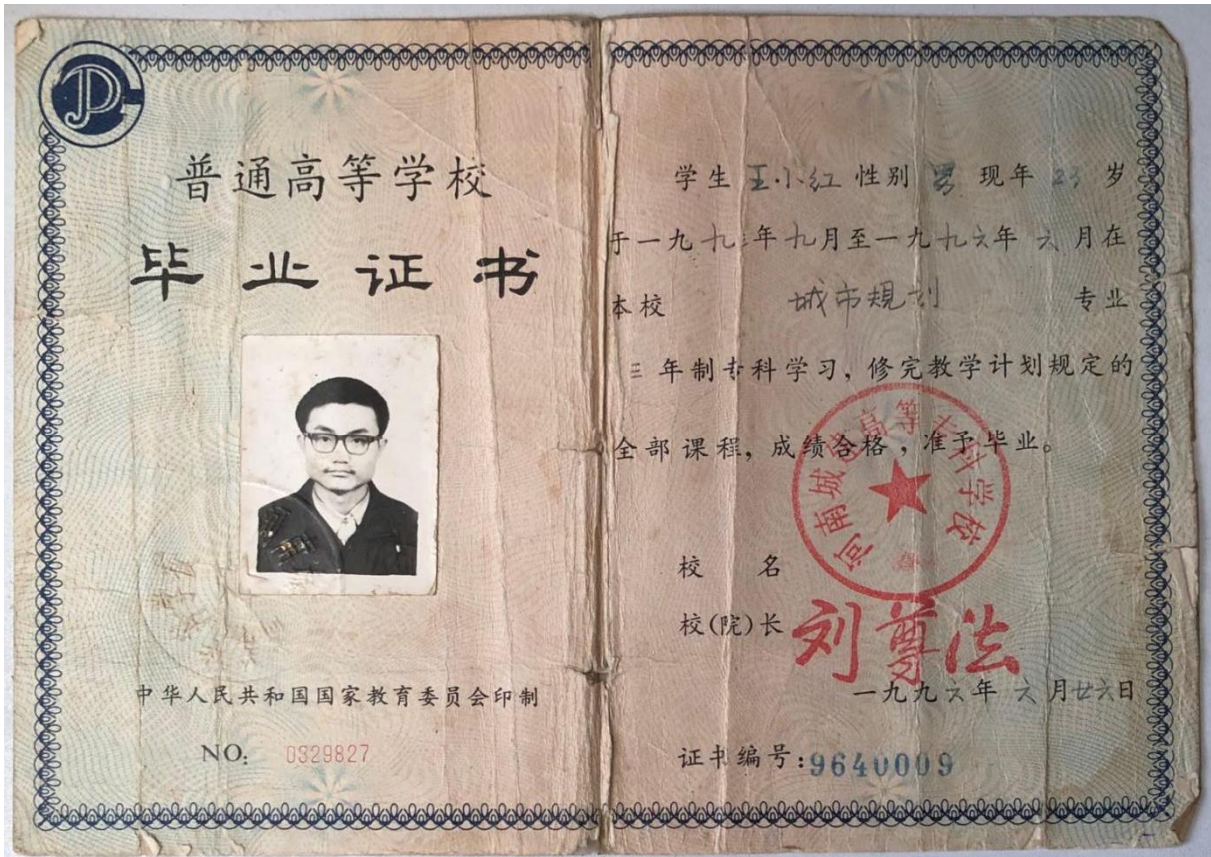 普通高等学校
毕业证书
中华人民共和国国家教育委员会印制
NO: 0329827
学生 王小红 性别 男 现年 23 岁
于一九九三年九月至一九九六年 六 月在
本校 城市规划 专业
三 年制专科学习，修完教学计划规定的
全部课程，成绩合格，准予毕业。
河南城建高等专科学校
校 名
校(院)长 刘尊法
一九九六年 六 月廿六日
证书编号:9640009